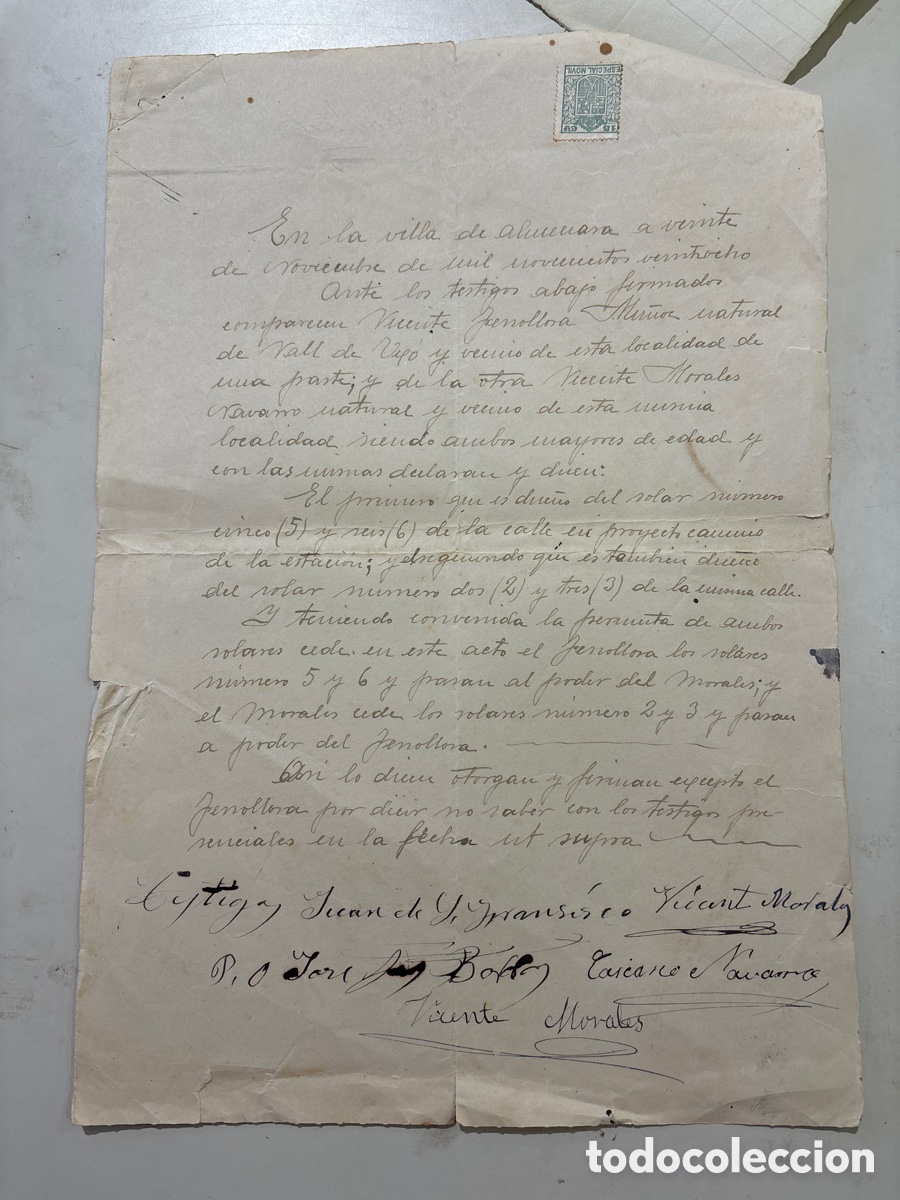 ESPECIAL MOVIL
15 CU
En la villa de Almenara a veinte
de Noviembre de mil novecientos veintiocho
Ante los testigos abajo firmados
comparecen Vicente Fenollosa Muñoz natural
de Vall de Uxó y vecino de esta localidad de
una parte; y de la otra Vicente Morales
Navarro natural y vecino de esta misma
localidad siendo ambos mayores de edad y
con las mismas declaran y dicen:
El primero que es dueño del solar número
cinco (5) y seis (6) de la calle en proyecto camino
de la estación; y el segundo que es también dueño
del solar número dos (2) y tres (3) de la misma calle.
Y teniendo convenida la permuta de ambos
solares cede en este acto el Fenollosa los solares
número 5 y 6 y pasan al poder del Morales; y
el Morales cede los solares número 2 y 3 y pasan
a poder del Fenollosa.
Asi lo dicen otorgan y firman excepto el
Fenollosa por dicir no saber con los testigos pre-
senciales en la fecha ut supra
Testigos Juan de Fransisco Vicent Morales
P. O Jose Navarro
Vicente Morales
todocoleccion